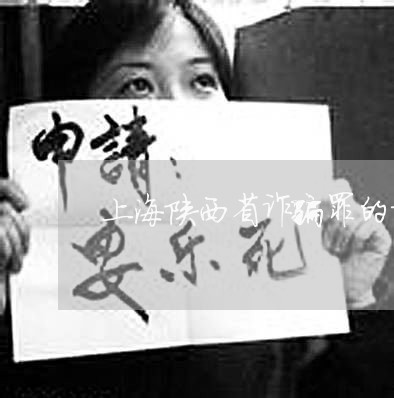 申請：
上海陕西省诈骗罪的
安乐死